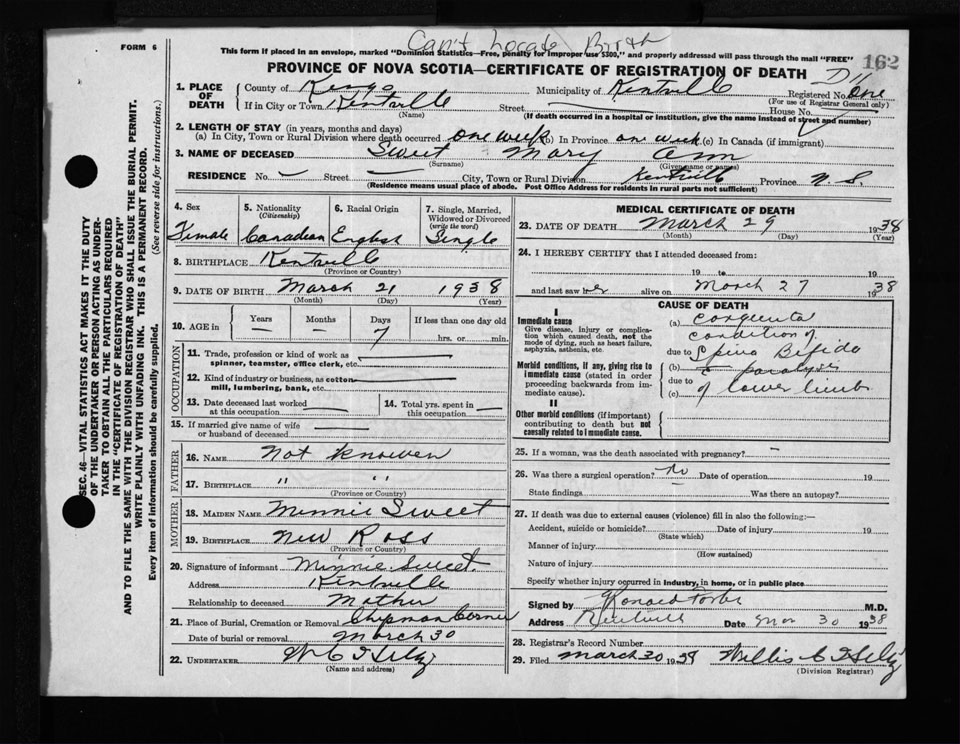 Can't Locate Birth
FORM 6
This form if placed in an envelope, marked "Dominion Statistics—Free, penalty for improper use $300," and properly addressed will pass through the mail "FREE"
162
PROVINCE OF NOVA SCOTIA—CERTIFICATE OF REGISTRATION OF DEATH
1. PLACE OF DEATH
County of Kings Municipality of Kentville Registered No. one
(For use of Registrar General only)
If in City or Town Kentville Street — House No.
(Name) (If death occurred in a hospital or institution, give the name instead of street and number)
2. LENGTH OF STAY (in years, months and days)
(a) In City, Town or Rural Division where death occurred one week (b) In Province one week (c) In Canada (if immigrant)
3. NAME OF DECEASED Sweet Mary Ann
(Surname) (Given name or names)
RESIDENCE No. — Street — City, Town or Rural Division Kentville Province N.S.
(Residence means usual place of abode. Post Office Address for residents in rural parts not sufficient)
4. Sex Female
5. Nationality (Citizenship) Canadian
6. Racial Origin English
7. Single, Married, Widowed or Divorced (write the word) Single
8. BIRTHPLACE Kentville
(Province or Country)
9. DATE OF BIRTH March 21 1938
(Month) (Day) (Year)
10. AGE in Years — Months — Days 7 If less than one day old
hrs. or min.
OCCUPATION
11. Trade, profession or kind of work as spinner, teamster, office clerk, etc. —
12. Kind of industry or business, as cotton-mill, lumbering, bank, etc. —
13. Date deceased last worked at this occupation —
14. Total yrs. spent in this occupation —
15. If married give name of wife or husband of deceased —
FATHER
16. NAME Not Knowen
17. BIRTHPLACE " "
(Province or Country)
MOTHER
18. MAIDEN NAME Minnie Sweet
19. BIRTHPLACE New Ross
(Province or Country)
20. Signature of informant Minnie Sweet.
Address Kentville
Relationship to deceased Mother
21. Place of Burial, Cremation or Removal Chipman Corner
Date of burial or removal March 30
22. UNDERTAKER
(Name and address)
MEDICAL CERTIFICATE OF DEATH
23. DATE OF DEATH March 29 1938
(Month) (Day) (Year)
24. I HEREBY CERTIFY that I attended deceased from:
19 to 19
and last saw her alive on March 27 1938
CAUSE OF DEATH
I
Immediate cause
Give disease, injury or complication which caused death, not the mode of dying, such as heart failure, asphyxia, asthenia, etc.
Morbid conditions, if any, giving rise to immediate cause (stated in order proceeding backwards from immediate cause).
II
Other morbid conditions (if important) contributing to death but not causally related to immediate cause.
(a)
condition of
due to Spina Bifida
(b) paralysis
due to
(c) of lower limbs
25. If a woman, was the death associated with pregnancy? —
26. Was there a surgical operation? No Date of operation 19
State findings Was there an autopsy?
27. If death was due to external causes (violence) fill in also the following:—
Accident, suicide or homicide? Date of injury 19
(State which)
Manner of injury
(How sustained)
Nature of injury
Specify whether injury occurred in industry, in home, or in public place
Signed by M.D.
Address Kentville Date Mar 30 1938
28. Registrar's Record Number
29. Filed March 30 1938
(Division Registrar)
SEC. 46—VITAL STATISTICS ACT MAKES IT THE DUTY
OF THE UNDERTAKER OR PERSON ACTING AS UNDER-
TAKER TO OBTAIN ALL THE PARTICULARS REQUIRED
IN THE "CERTIFICATE OF REGISTRATION OF DEATH"
AND TO FILE THE SAME WITH THE DIVISION REGISTRAR WHO SHALL ISSUE THE BURIAL PERMIT.
WRITE PLAINLY WITH UNFADING INK. THIS IS A PERMANENT RECORD.
Every item of information should be carefully supplied.
(See reverse side for instructions.)